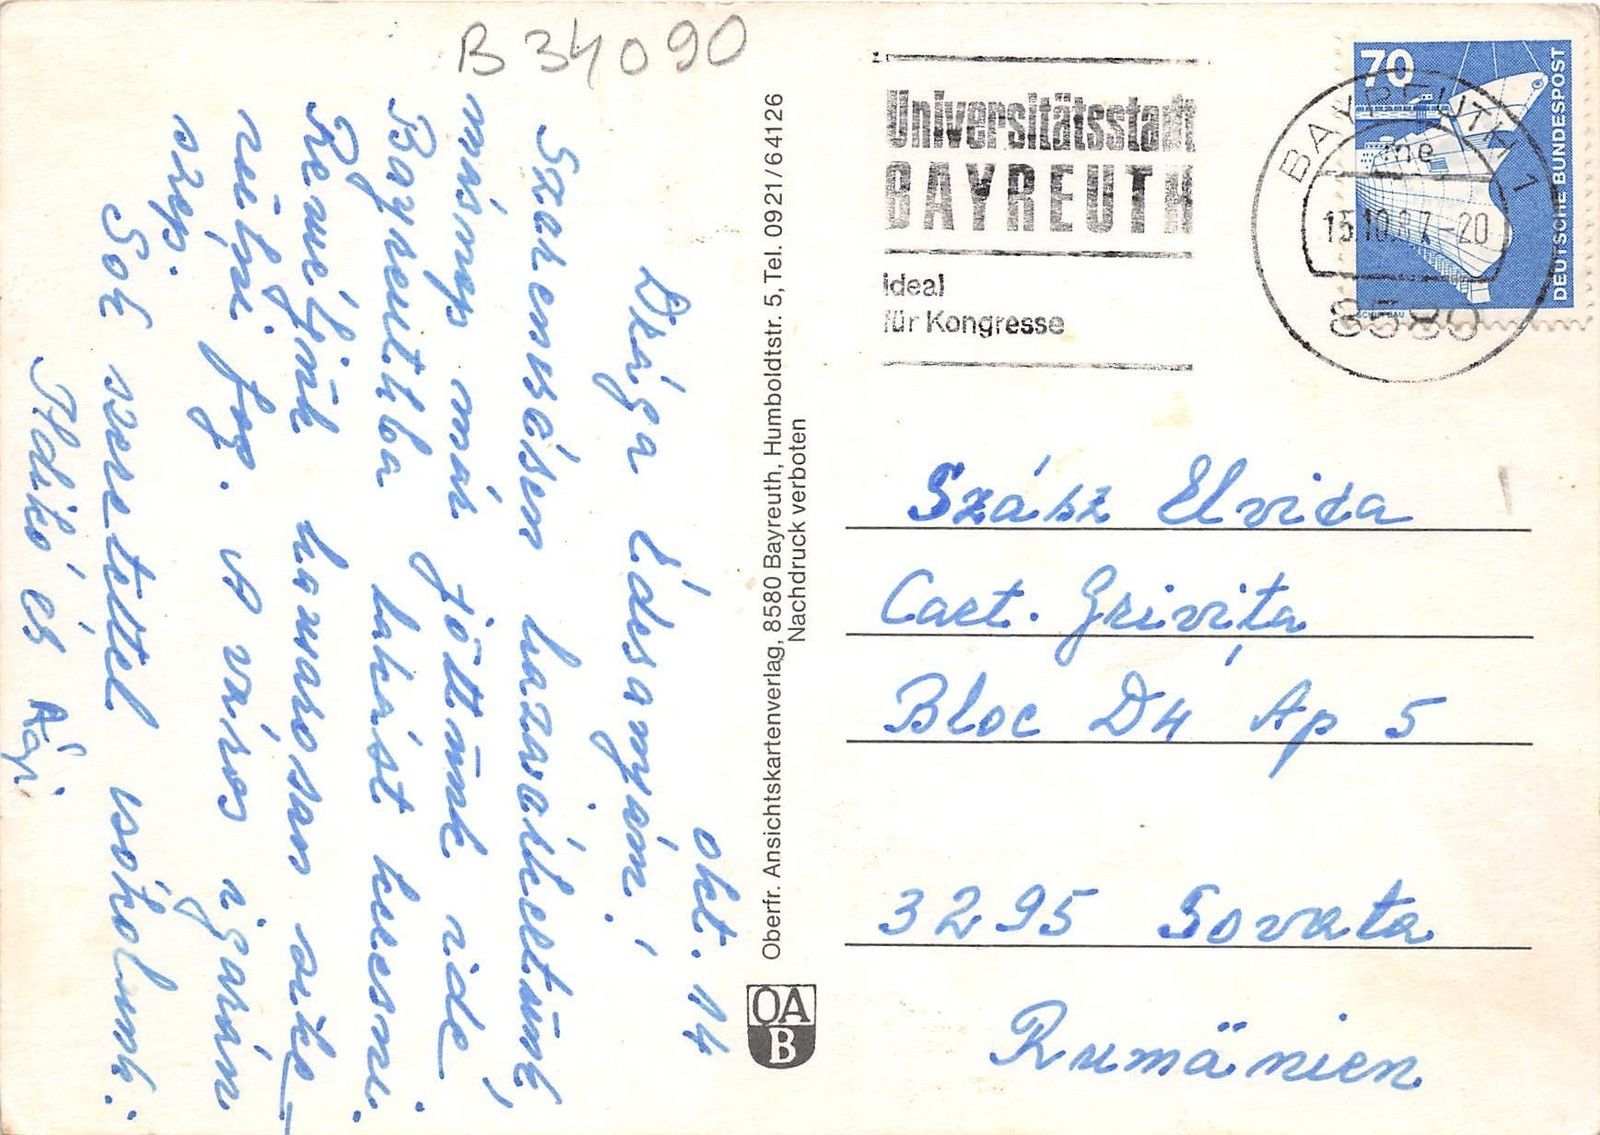 B 34090
okt. 14
Drága Édesanyám!
Szerencsésen hazaérkeztünk,
másnap már jöttünk ide
Bayreuthba lakást keresni.
Reméljük hamarosan sike-
rülni fog. A város igazán
szép.
Sok szeretettel csókolunk:
Ildikó és
Oberfr. Ansichtskartenverlag, 8580 Bayreuth, Humboldtstr. 5, Tel. 0921/64126
Nachdruck verboten
OA
B
Universitätsstadt
BAYREUTH
ideal
für Kongresse
BAYREUTH 1
me
15.10.87-20
8580
70
DEUTSCHE BUNDESPOST
SCHIFFBAU
Szász Elvira
Cart. Grivița
Bloc D4 Ap 5
3295 Sovata
Rumänien